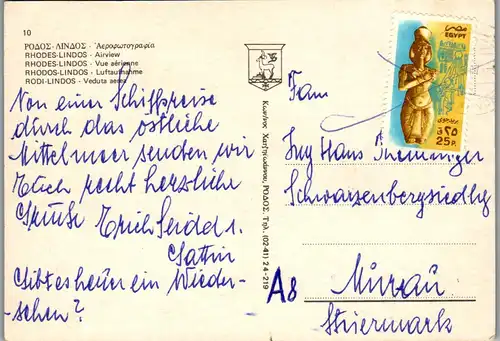 10
ΡΟΔΟΣ - ΛΙΝΔΟΣ - Ἀεροφωτογραφία
RHODES-LINDOS - Airview
RHODES-LINDOS - Vue aérienne
RHODOS-LINDOS - Luftaufnahme
RODI-LINDOS - Veduta aerea
Von einer Schiffsreise
durch das östliche
Mittelmeer senden wir
Euch recht herzliche
Grüße Erich Seidl u.
Gattin
Gibt es heuer ein Wieder-
-sehen?
Κων/νος Χατζηιωάννου, ΡΟΔΟΣ. Τηλ. (0241) 24-219
EGYPT
مصر
25 P.
٢٥
Fam
Ing Hans
Schwarzenbergsiedlg
A8
Murau
Steiermark